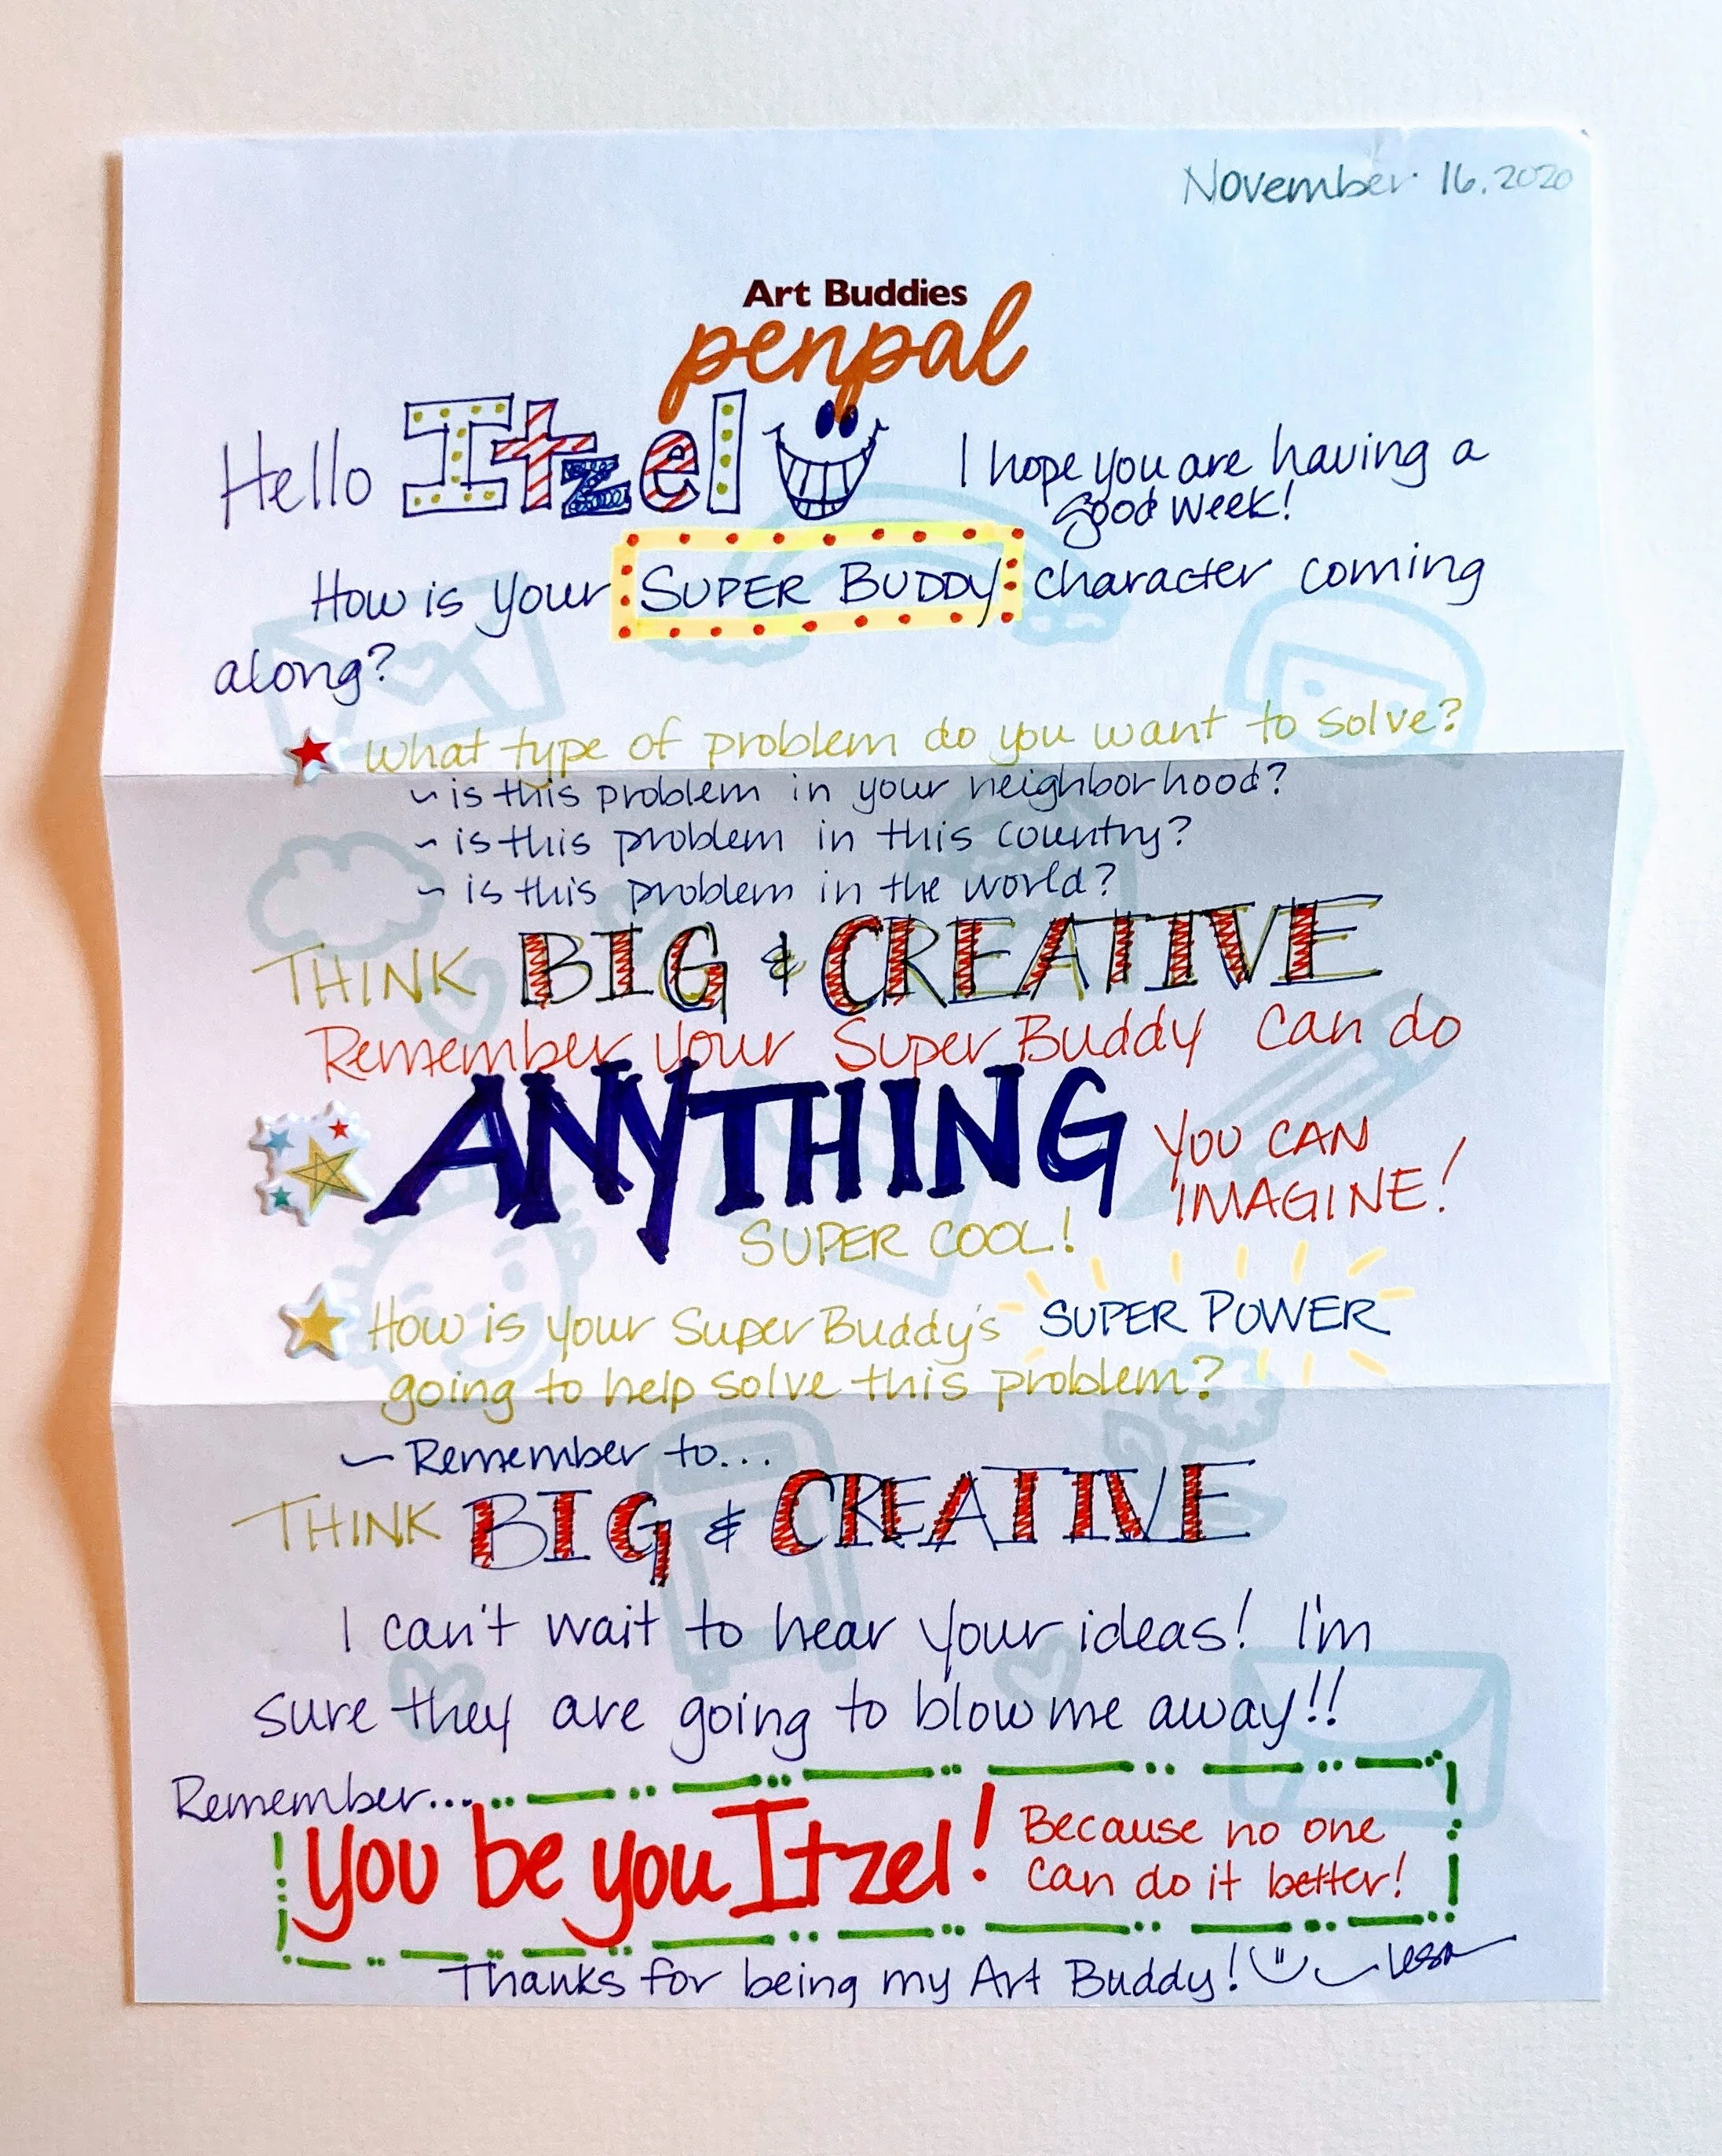 November 16. 2020
Art Buddies
penpal
Hello Itzel I hope you are having a
good week!
How is your SUPER BUDDY character coming
along?
What type of problem do you want to solve?
~ is this problem in your neighborhood?
~ is this problem in this country?
~ is this problem in the world?
THINK BIG & CREATIVE
Remember your Super Buddy can do
ANYTHING YOU CAN
IMAGINE!
SUPER COOL!
How is your Super Buddy's SUPER POWER
going to help solve this problem?
~ Remember to...
THINK BIG & CREATIVE
I can't wait to hear your ideas! I'm
sure they are going to blow me away!!
Remember...
you be you Itzel! Because no one
can do it better!
Thanks for being my Art Buddy! ~